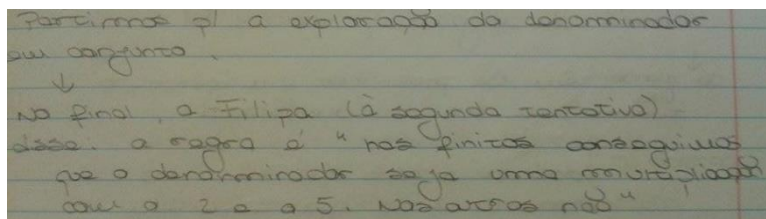 Partimos p/ a exploração do denominador
em conjunto.
↓
No final, a Filipa (à segunda tentativa)
disse: a regra é "nas finitas conseguimos
que o denominador seja uma multiplicação
com o 2 e o 5. Nas outras não"